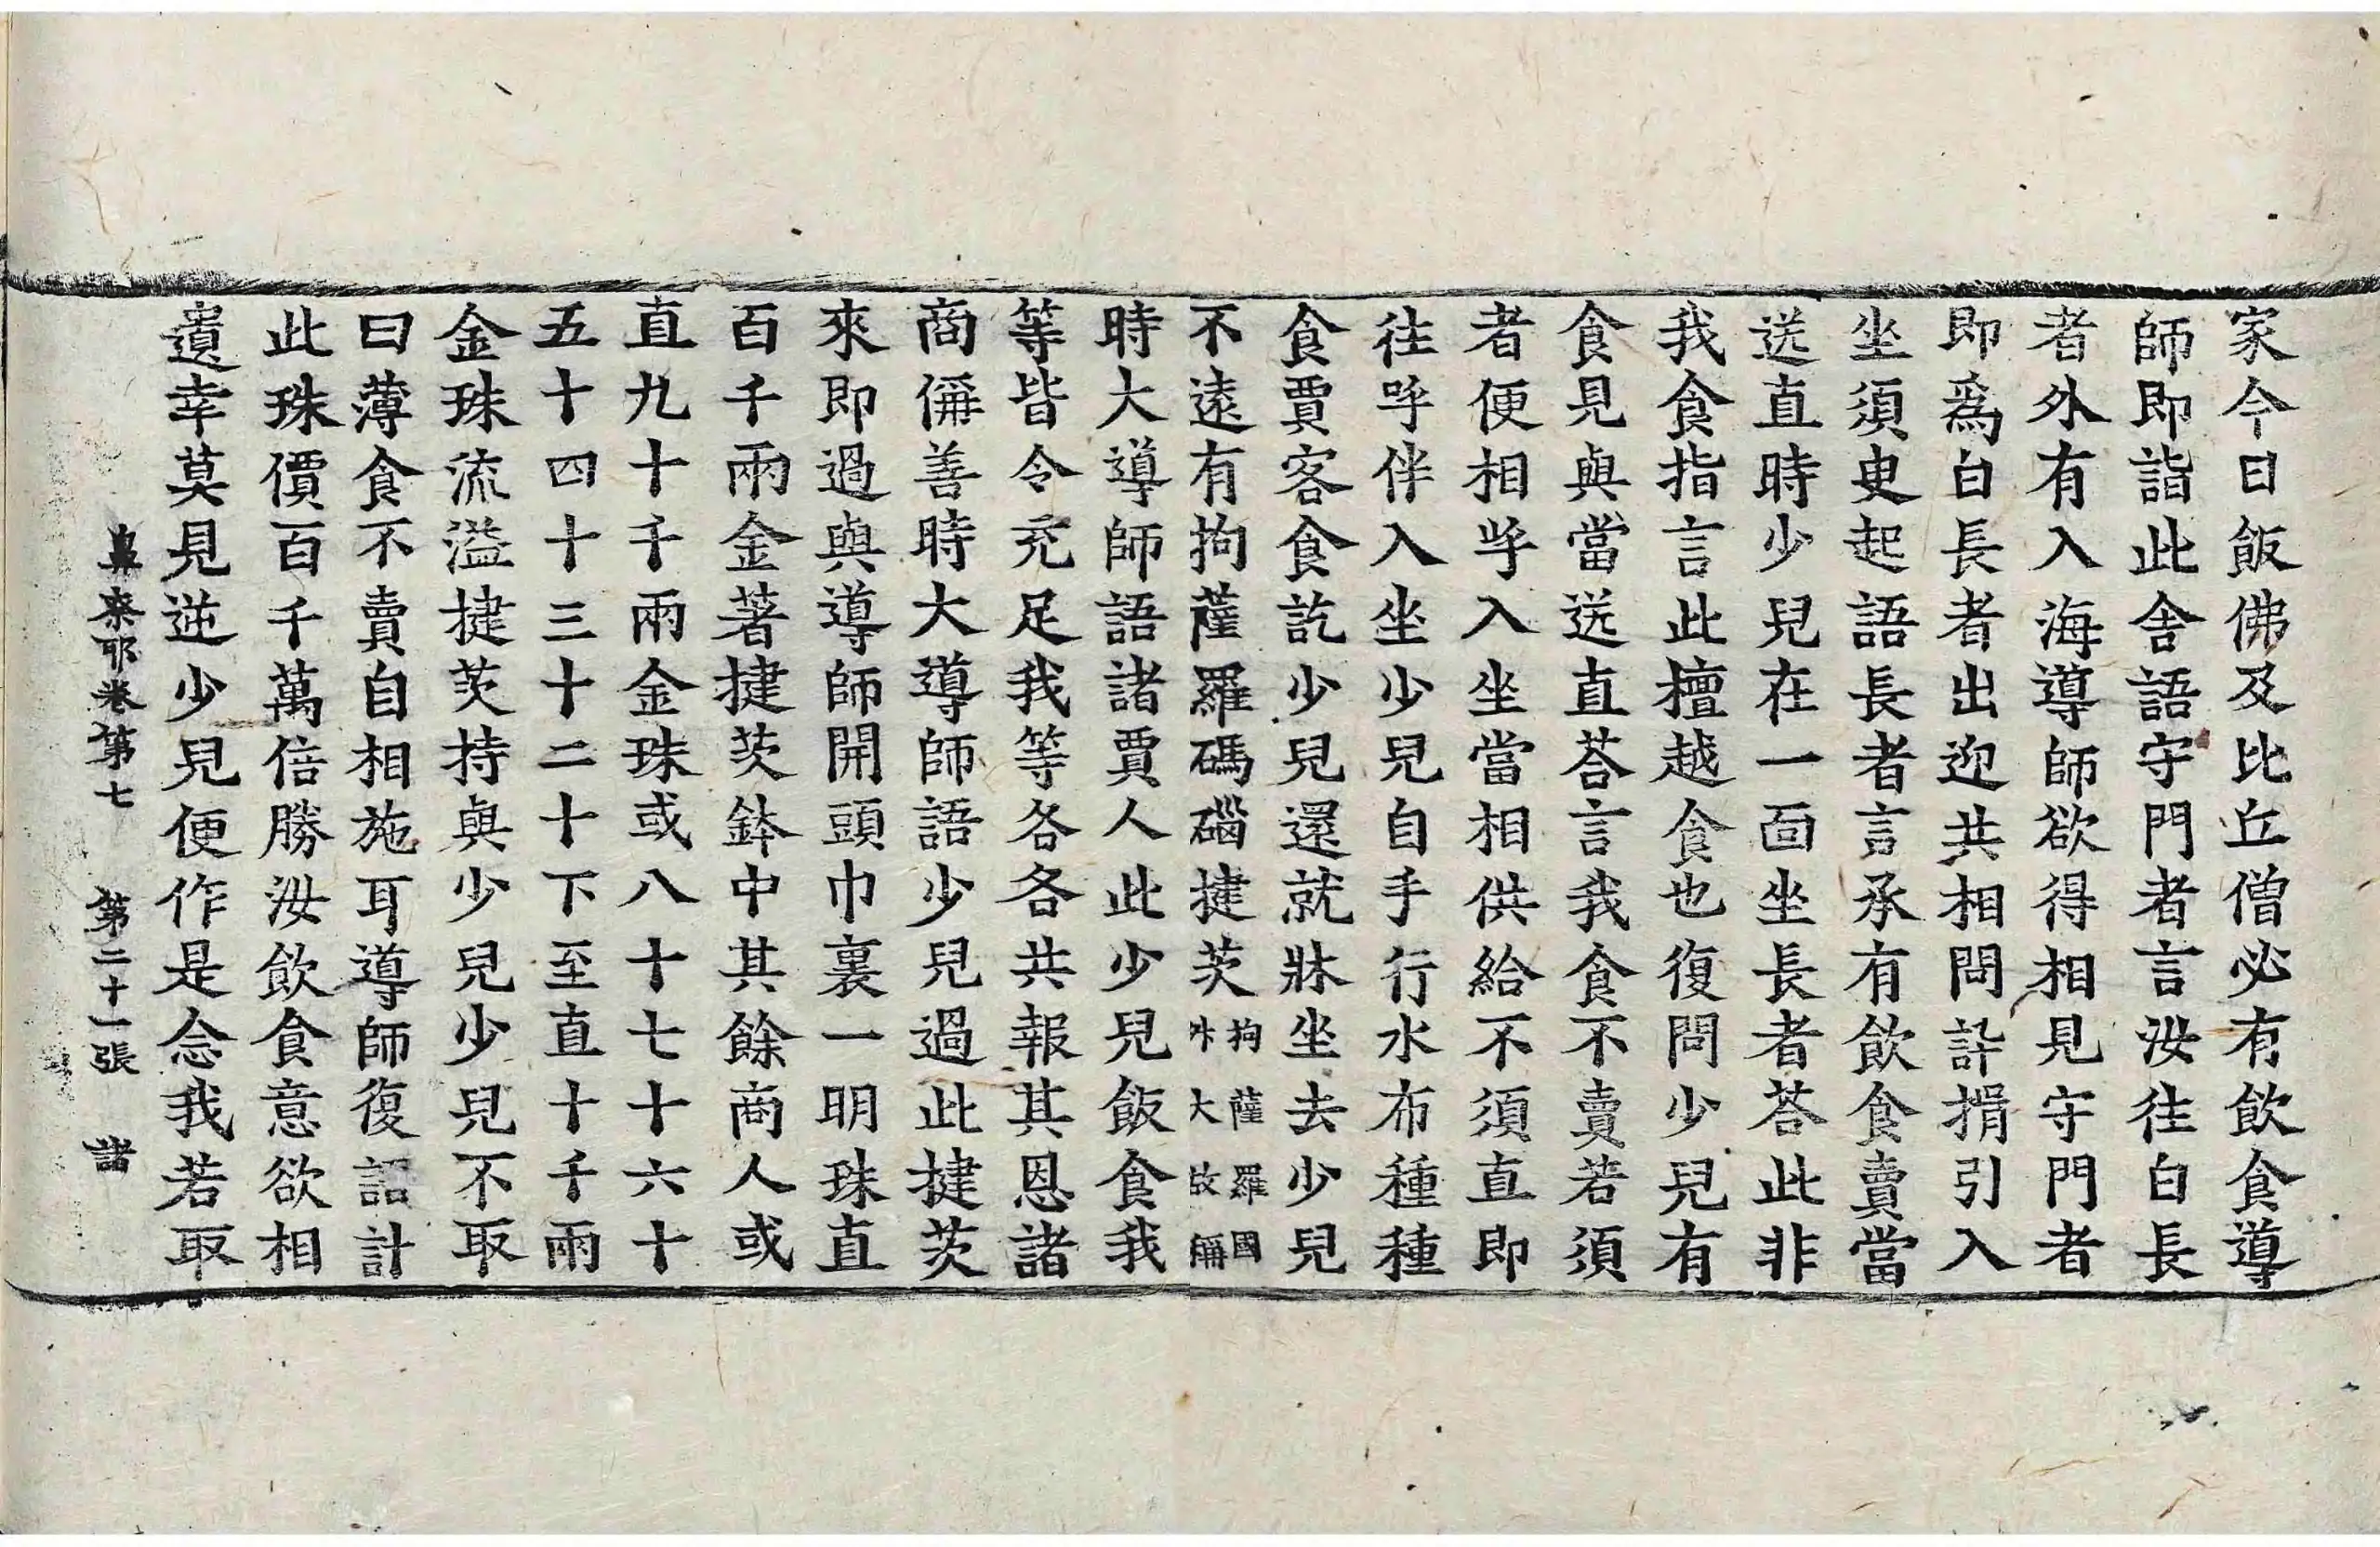 家今日飯佛及比丘僧必有飲食導
師即詣此舍語守門者言汝往白長
者外有入海導師欲得相見守門者
即爲白長者出迎共相問訊揖引入
坐須臾起語長者言承有飲食賣當
送直時少兒在一面坐長者荅此非
我食指言此檀越食也復問少兒有
食見與當送直荅言我食不賣若須
者便相呼入坐當相供給不須直即
往呼伴入坐少兒自手行水布種種
食賈客食訖少兒還就牀坐去少兒
不遠有拘薩羅碼碯揵茨拘薩羅國㭊大故稱
時大導師語諸賈人此少兒飯食我
等皆令充足我等各各共報其恩諸
商儞善時大導師語少兒過此揵茨
來即過與導師開頭巾裏一明珠直
百千兩金著揵茨鉢中其餘商人或
直九十千兩金珠或八十七十六十
五十四十三十二十下至直十千兩
金珠流溢揵茨持與少兒少兒不取
曰薄食不賣自相施耳導師復語計
此珠價百千萬倍勝汝飲食意欲相
遺幸莫見逆少兒便作是念我若取
鼻柰耶卷第七　第二十一張　諸